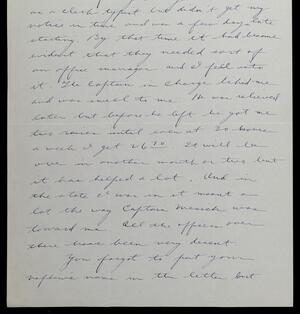 as a clerk typist but didn't get my
notice in time and was a few days late
starting. By that time it had become
evident that they needed sort of
an office manager and I fell into
it. The Captain in charge liked me
and was swell to me. He was relieved
later but before he left he got me
two raises until even at 30 hours
a week I get 26
over in another month or two but
it has helped a lot. And in
the state I was in it meant a
lot the way Captain was
toward me. All the officers over
there have been very decent.
You forgot to put your
nephew's name in the letter but